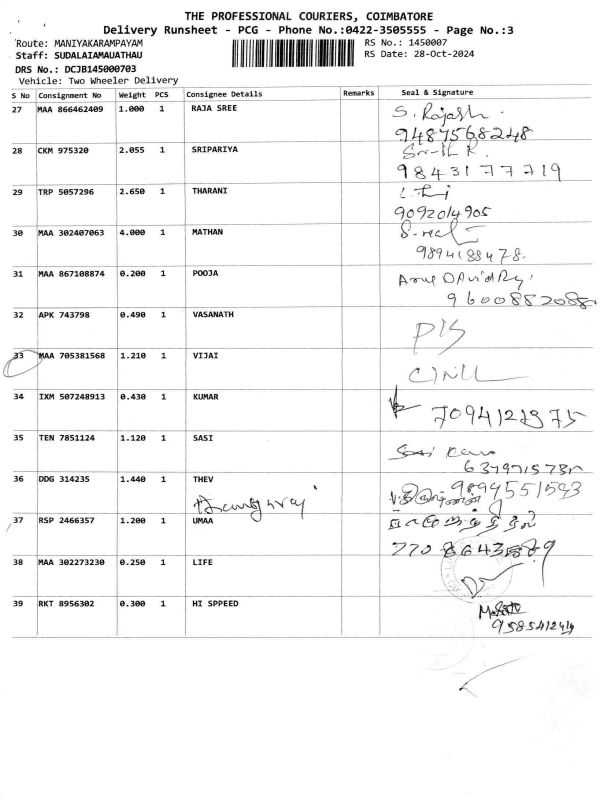 THE PROFESSIONAL COURIERS, COIMBATORE
Delivery Runsheet - PCG - Phone No.:0422-3505555 - Page No.:3
Route: MANIYAKARAMPAYAM RS No.: 1450007
Staff: SUDALAIAMAUATHAU RS Date: 28-Oct-2024
DRS No.: DCJB145000703
Vehicle: Two Wheeler Delivery
S No Consignment No Weight PCS Consignee Details Remarks Seal & Signature
27 MAA 866462409 1.000 1 RAJA SREE S. Rajash
9487568248
28 CKM 975320 2.055 1 SRIPARIYA
9843177719
29 TRP 5057296 2.650 1 THARANI
9092014905
30 MAA 302407063 4.000 1 MATHAN
9894188478
31 MAA 867108874 0.200 1 POOJA
9600882088
32 APK 743798 0.490 1 VASANATH
33 MAA 705381568 1.210 1 VIJAI
34 IXM 507248913 0.430 1 KUMAR
7094121975
35 TEN 7851124 1.120 1 SASI Sasi
36 DDG 314235 1.440 1 THEV
9894551593
37 RSP 2466357 1.200 1 UMAA
38 MAA 302273230 0.250 1 LIFE
39 RKT 8956302 0.300 1 HI SPPEED